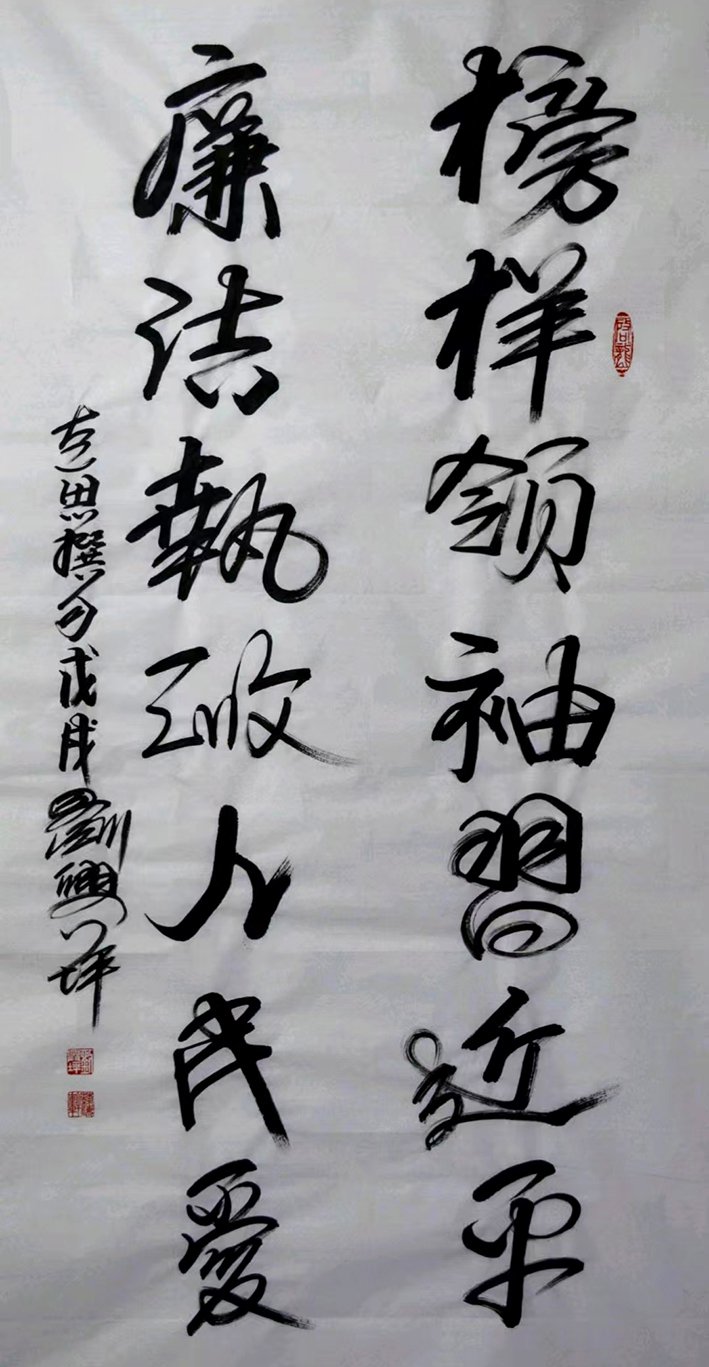 榜样领袖習近平
廉洁執政人民爱
思撰句戊戌劉興坪